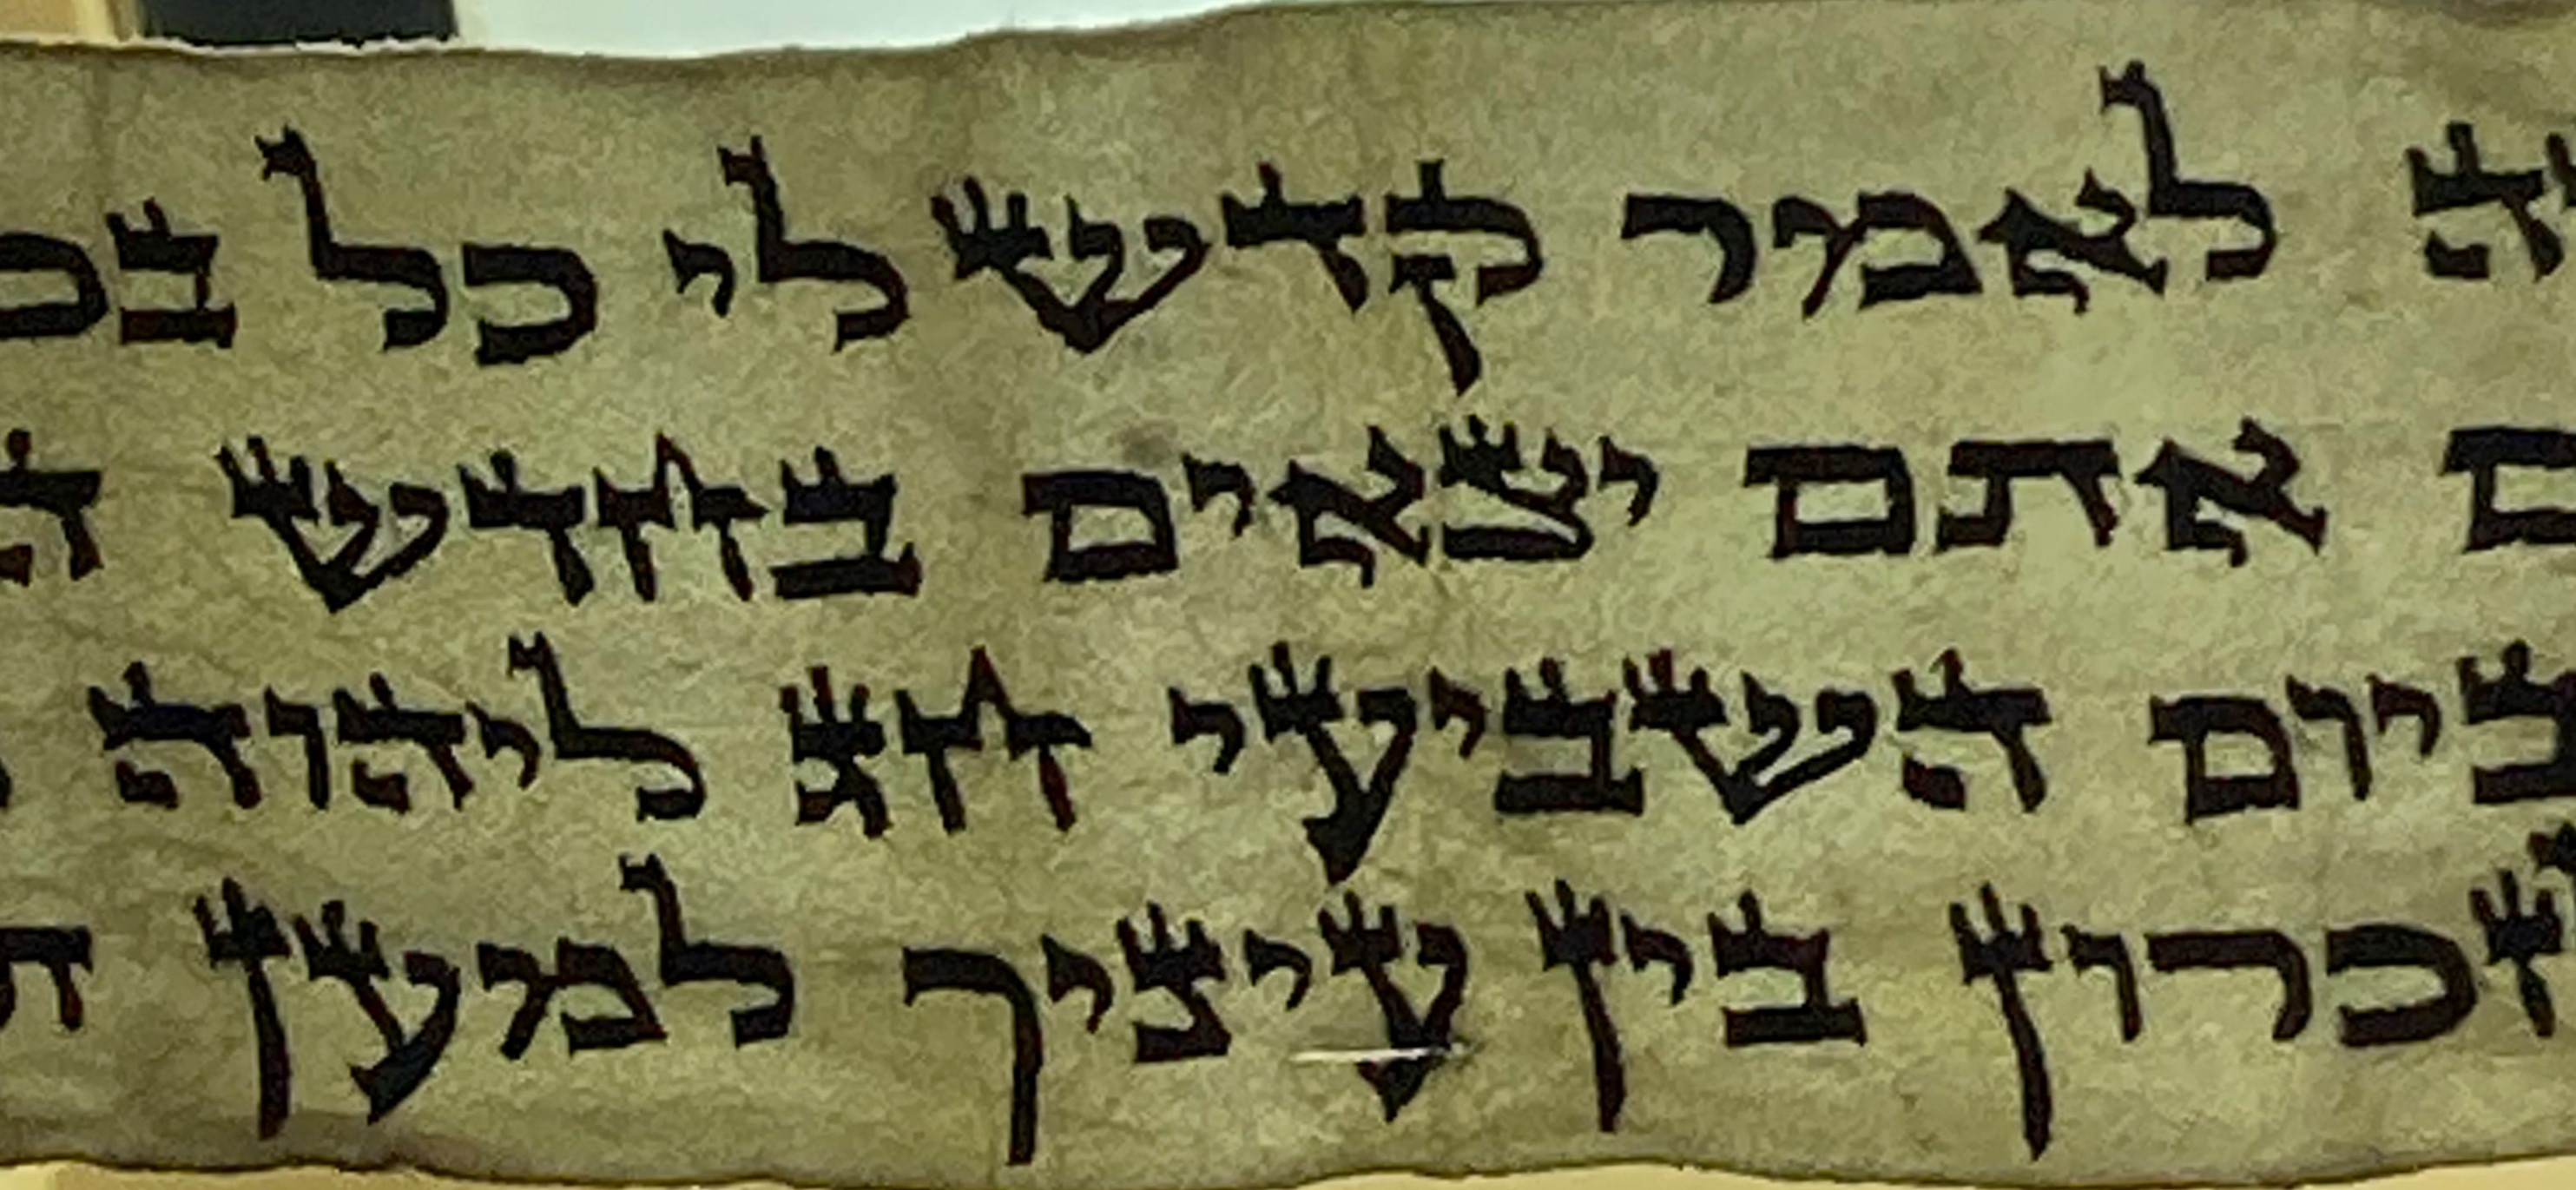 ה לאמר קדש לי כל בכ
ם אתם יצאים בחדש ה
ביום השביעי חג ליהוה
זכרון בין עיניך למען ת